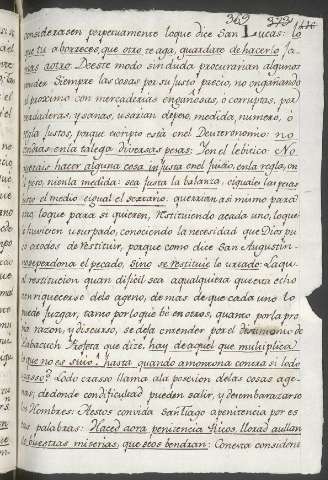 369 373
considerasen perpetuamente loque dice San Lucas: lo
que tu aborreces, que otro te aga, guardate de hacerlo ja-
mas aotro. Deeste modo sin duda procurarian algunos
vender siempre las cosas por su justo precio, no engañando
al proximo con mercaderias engañosas, o corruptas, por
verdaderas, y sanas, usarian depeso, medida, numero, ò
regla justos, porque escripto està en el Deuteronomio: no
tendràs, en la talega diversas pesas: Yen el lebitico: No
querais hacer alguna cosa injusta en el juicio, en la regla, en
el peso, ni en la medida: sea justa la balanza, e iguales las pesas
justo el medio, e igual el sextario. querrian asi mismo para
otro, loque para si quieren, Restituiendo acada uno, loque
huvieren usurpado, conociendo la necesidad que Dios pu-
so atodos de Restituir, porque como dice San Augustin:
noseperdona el pecado, sino se restituie lo urtado: Laqual
restitucion quan dificil sea aqualquiera que esta echo
enrriquecerse delo ageno, de mas de que cada uno lo
puede juzgar, tanto porloque vè en otros, quanto por la pro-
pia razon, y discurso, se deja entender por el testimonio de
Habacuch Profeta que dize, hay de aquel que multiplica
loque no es suio! hasta quando amontona contra si lodo
crasso? Lodo crasso llama ala posecion delas cosas age-
nas, de donde con dificultad pueden salir, y desembarazarse
los Hombres: Aestos convida Santiago apenitencia por es-
tas palabras: Haced aora penitencia Ricos, llorad aullan-
do vuestras miserias, que seos bendran: Con esta considera-